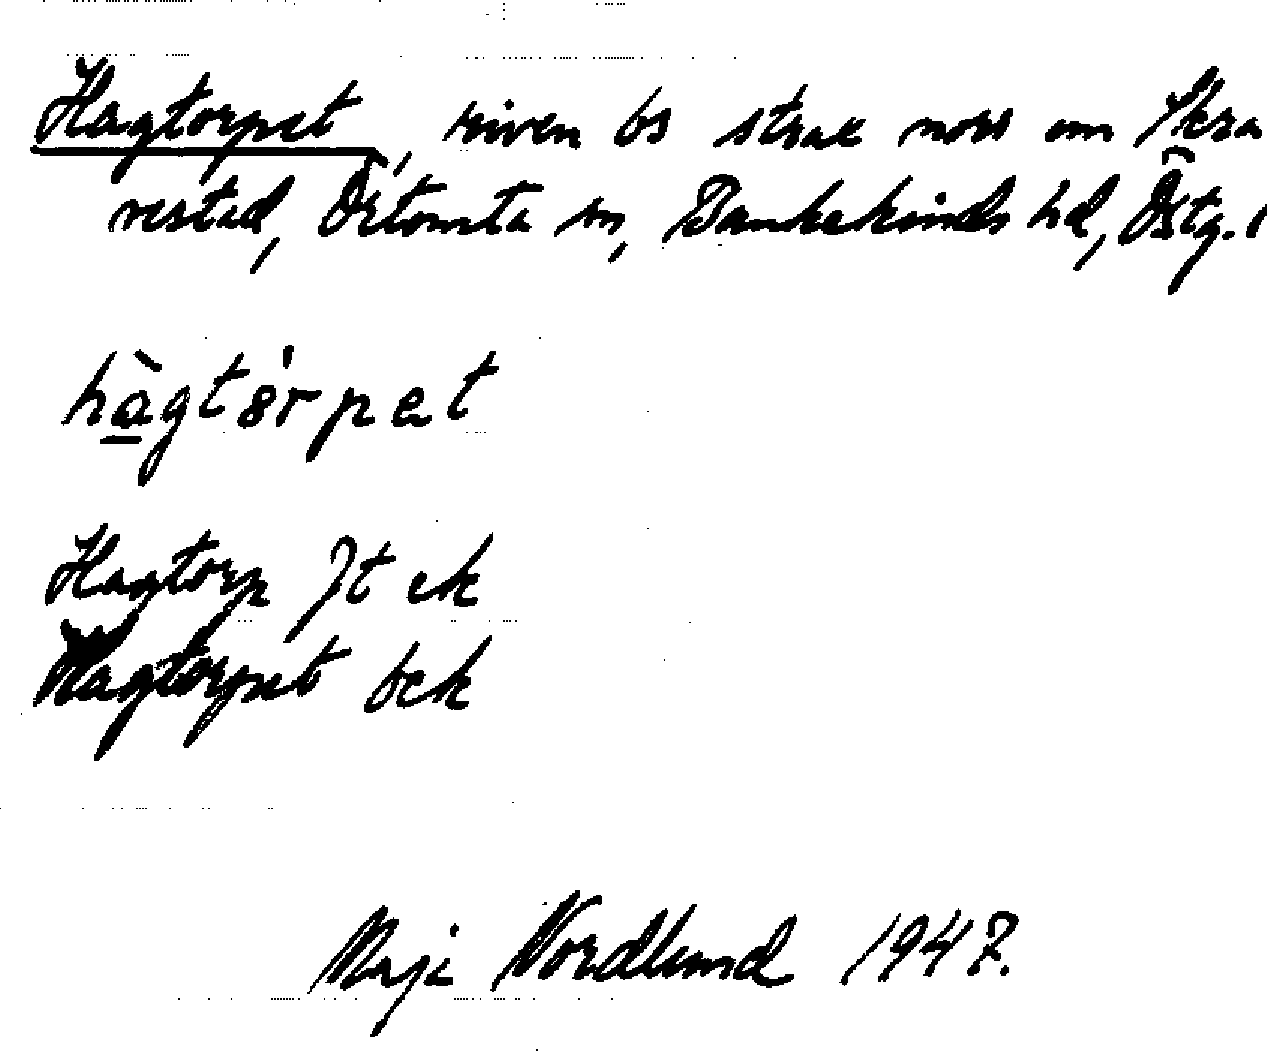 Hagtorpet, riven bs strax norr om Skra
restad, Örtomta sn, Bankekinds hd, Östg. l
hàgtȣ́rpet
Hagtorp Jt ek
Hagtorpet bek
Maji Nordlund 1947.